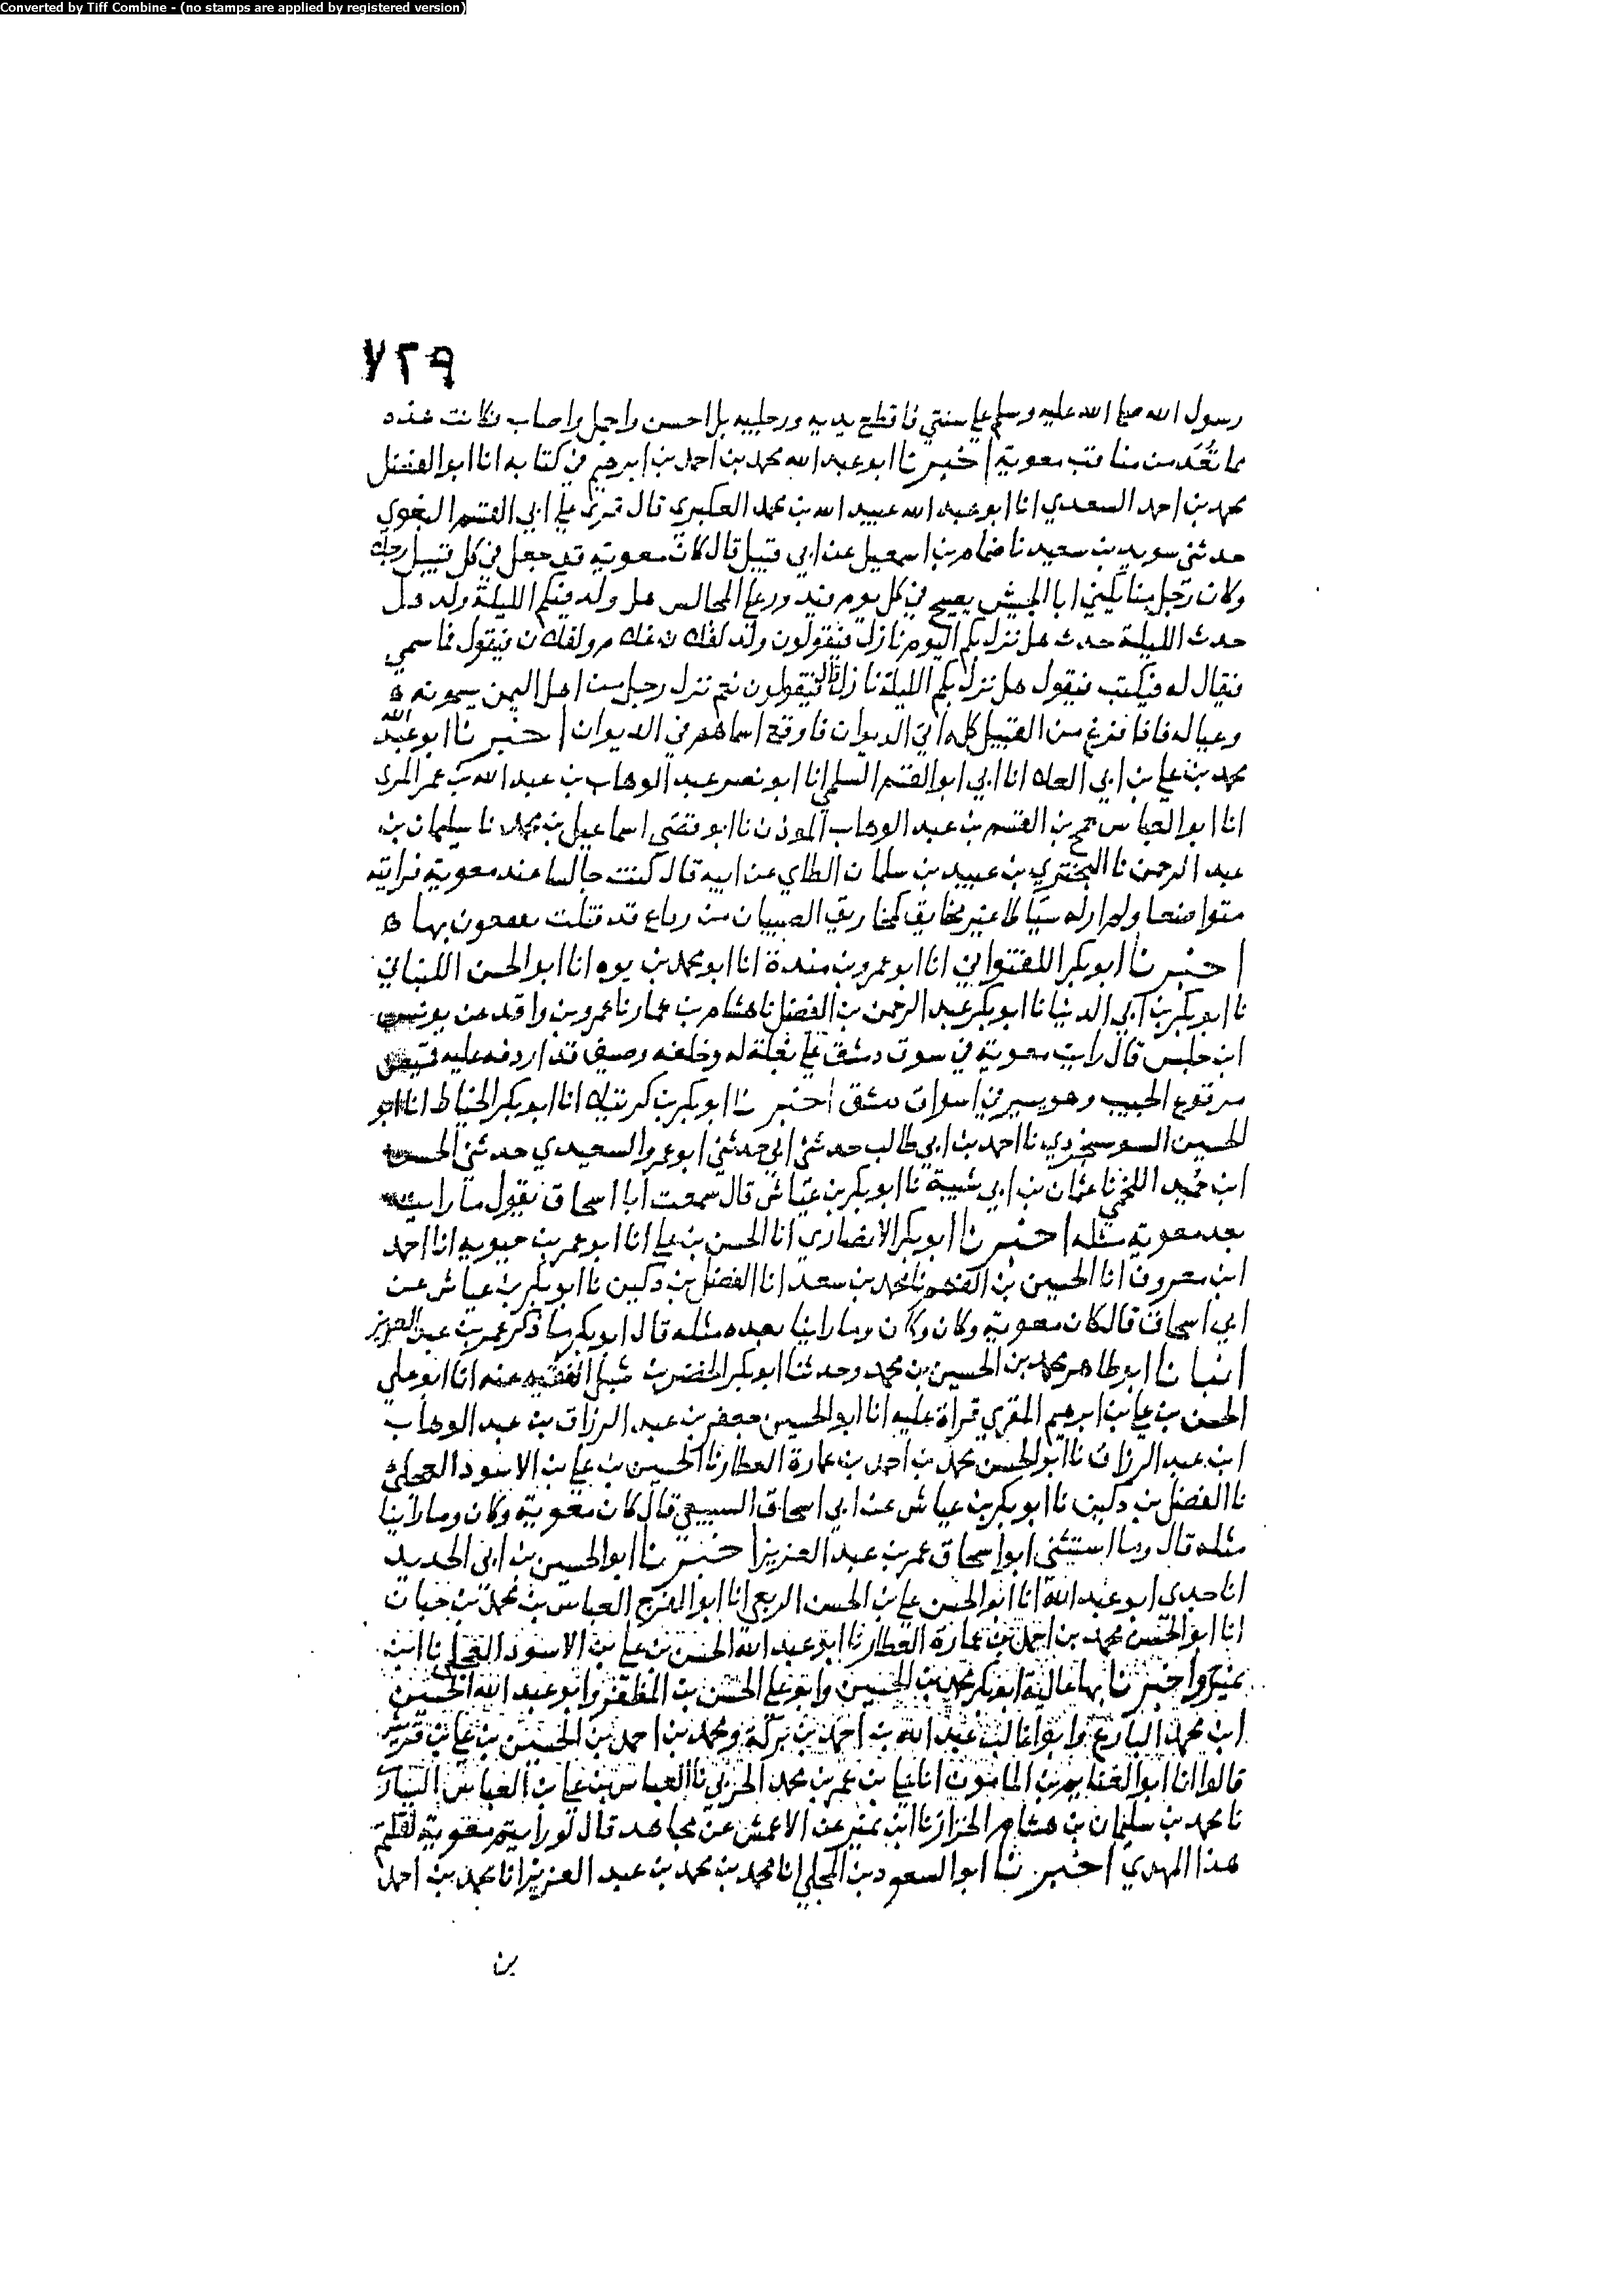 Converted by Tiff Combine - (no stamps are applied by registered version)
٧٢٩
رسول الله صلى الله عليه وسلم على سنتي فاقطع يديه ورجليه بل احسن واجمل واصاب فكانت هذه
مما تُعَد من مناقب معوية اخبرنا ابو عبد الله محمد بن احمد بن ابرهيم في كتابه انا ابو الفضل
محمد بن احمد السعدي انا ابو عبد الله عبيد الله بن محمد العكبري قال قرئ على ابي القسم البغوي
حدثني سويد بن سعيد نا ضمام بن اسمعيل عن ابي قبيل قال كان معوية قد جعل في كل قبيل رجلا
وكان رجل منا يكني ابا الجيش يصيح في كل يوم فيدور على المجالس هل ولد فيكم الليلة ولد هل
حدث الليلة حدث هل نزل بكم اليوم نازل فيقولون ولد لفلان غلام ولفلان فيقول فما سمي
فيقال له فيكتب فيقول هل نزل بكم الليلة نازل قال فيقولون نعم نزل رجل من اهل اليمن يسمونه
وعياله فاذا فرغ من القبيل كله اتى الديوان فاوقع اسماهم في الديوان اخبرنا ابو عبد الله
محمد بن علي بن ابي العلاء انا ابي ابو القسم السلمي انا ابو نصر عبد الوهاب بن عبد الله بن عمر المري
انا ابو العباس جمح بن القسم بن عبد الوهاب الموذن نا ابو قصي اسماعيل بن محمد نا سليمان بن
عبد الرحمن نا البختري بن عبيد بن سلمان الطاي عن ابيه قال كنت جالسا عند معوية فرايته
متواضعا ولم ار له سياطا غير مخاريق كمخاريق الصبيان من رقاع قد فتلت يفقعون بها
اخبرنا ابو بكر اللفتواني انا ابو عمرو بن مندة انا ابو محمد بن يوه انا ابو الحسن اللنباني
نا ابو بكر بن ابي الدنيا نا ابو بكر عبد الرحمن بن الفضل نا هشام بن عمار نا عمرو بن واقد عن يونس
ابن حلبس قال رايت معوية في سوق دمشق على بغلة له وخلفه وصيف قد اردفه عليه قميص
مرقوع الجيب وهو يسير في اسواق دمشق اخبرنا ابو بكر بن كرتيلا انا ابو بكر الخياط انا ابو
الحسين السوسنجردي نا احمد بن ابي طالب حدثني ابي حدثني ابو عمرو السعيدي حدثني الحسن
ابن حُميد اللخمي نا عثمان بن ابي شيبة نا ابو بكر بن عياش قال سمعت ابا اسحاق يقول ما رايت
بعد معوية مثله اخبرنا ابو بكر الانصاري انا الحسن بن علي انا ابو عمر بن حيويه انا احمد
ابن معروف انا الحسين بن الفهم نا محمد بن سعد انا الفضل بن دكين نا ابو بكر بن عياش عن
ابي اسحاق قال كان معوية وكان وكان وما راينا بعده مثله قال ابو بكر ما ذكر عمر بن عبد العزيز
انبانا ابو طاهر محمد بن الحسين بن محمد وحدثنا ابو بكر الخضر بن شبل الفقيه عنه انا ابو علي
الحسن بن علي بن ابرهيم المقري قراة عليه انا ابو الحسين جعفر بن عبد الرزاق بن عبد الوهاب
ابن عبد الرزاق نا ابو الحسن محمد بن احمد بن عمارة العطار نا الحسين بن علي بن الاسود العجلي
نا الفضل بن دكين نا ابو بكر بن عياش عن ابي اسحاق السبيعي قال كان معوية وكان وما راينا
مثله قال وما استثنى ابو اسحاق عمر بن عبد العزيز اخبرنا ابو الحسين بن ابي الحديد
انا جدي ابو عبد الله انا ابو الحسن علي بن الحسن الربعي انا ابو الفرج العباس بن محمد بن حبان
انا ابو الحسن محمد بن احمد بن عمارة العطار نا ابو عبد الله الحسين بن علي بن الاسود العجلي نا ابن
نمير واخبرنا بها عالية ابو بكر محمد بن الحسين وابو علي الحسن بن المظفر وابو عبد الله الحسين
ابن محمد البارع وابو غالب عبد الله بن احمد بن بركة ومحمد بن احمد بن الحسين بن علي بن قريش
قالوا انا ابو الغنايم بن المامون انا علي بن عمر بن محمد الحربي نا العباس بن علي بن العباس
نا محمد بن سليمان بن هشام الخزاز نا ابن نمير عن الاعمش عن مجاهد قال لو رايتم معوية لقلتم
هذا المهدي اخبرنا ابو السعود بن المجلي انا محمد بن محمد بن عبد العزيز انا محمد بن احمد
بن